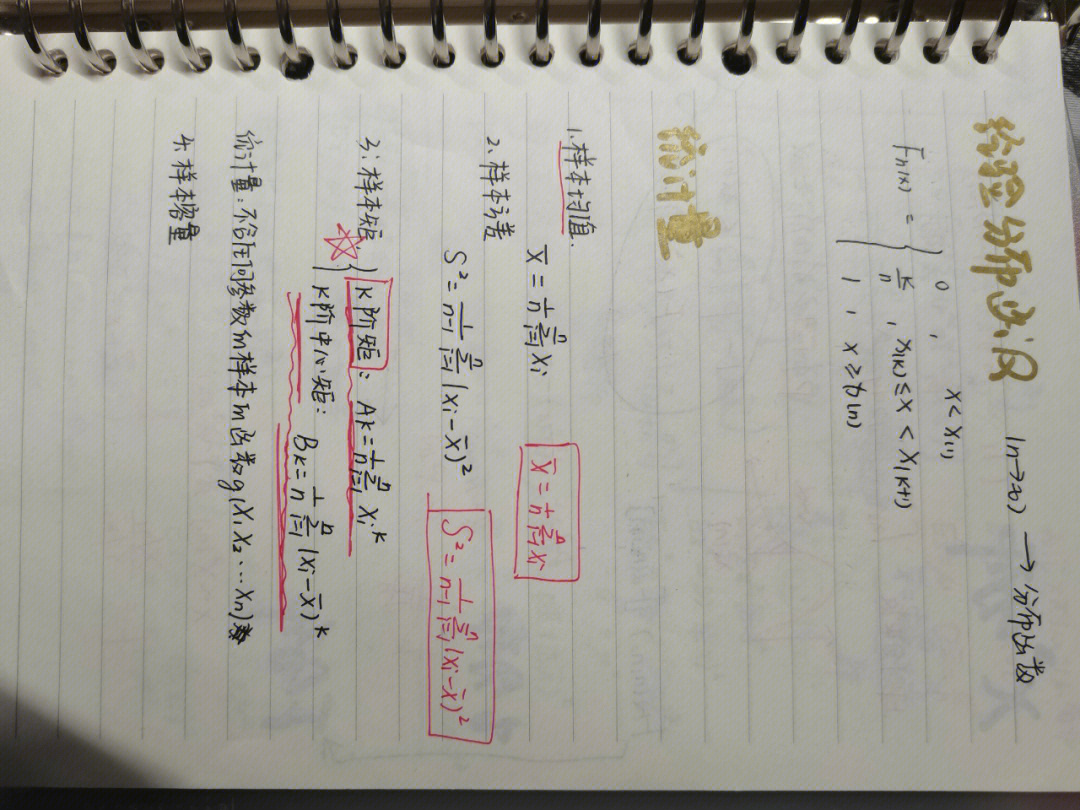 经验分布函数 (n→∞) → 分布函数
Fn(x) = { 0 , x < x(1)
k/n , x(k) ≤ x < x(k+1)
1 , x ≥ x(n)
统计量
1.样本均值.
X̄ = 1/n ∑ᵢ₌₁ⁿ Xi X̄ = 1/n ∑ᵢ₌₁ⁿ Xi
2、样本方差
S² = 1/(n-1) ∑ᵢ₌₁ⁿ (Xi - X̄)² S² = 1/(n-1) ∑ᵢ₌₁ⁿ (Xi - X̄)²
3、样本矩 { K阶矩: Ak = 1/n ∑ᵢ₌₁ⁿ Xiᵏ
K阶中心矩: Bk = 1/n ∑ᵢ₌₁ⁿ (Xi - X̄)ᵏ
统计量:不含任何参数的样本的函数g(X1 X2 ... Xn)
4、样本容量